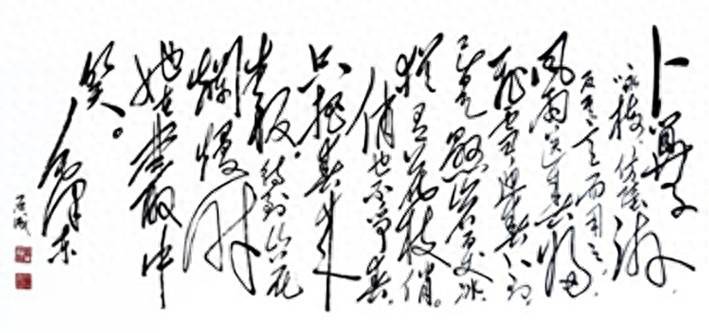 卜算子
咏梅、仿陆游
反其意而用之
风雨送春归
飞雪迎春到
已是悬崖百丈冰
犹有花枝俏。
俏也不争春
只把春来
报。待到山花
烂漫时
她在丛中
笑。
毛泽东